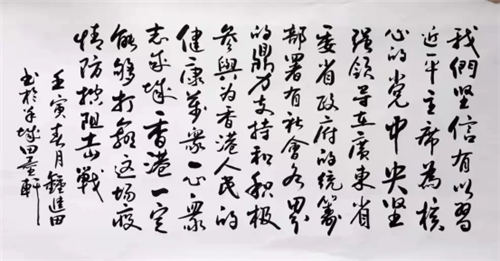 我們坚信有以習
近平主席為核
心的党中央坚
强领导在廣東省
委省政府的统筹
部署有社會各界
的鼎力支持和积极
参與为香港人民的
健康萬衆一心衆
志成城香港一定
能够打赢这场疫
情防控阻击战
壬寅春月鍾進田
书於羊城田軒